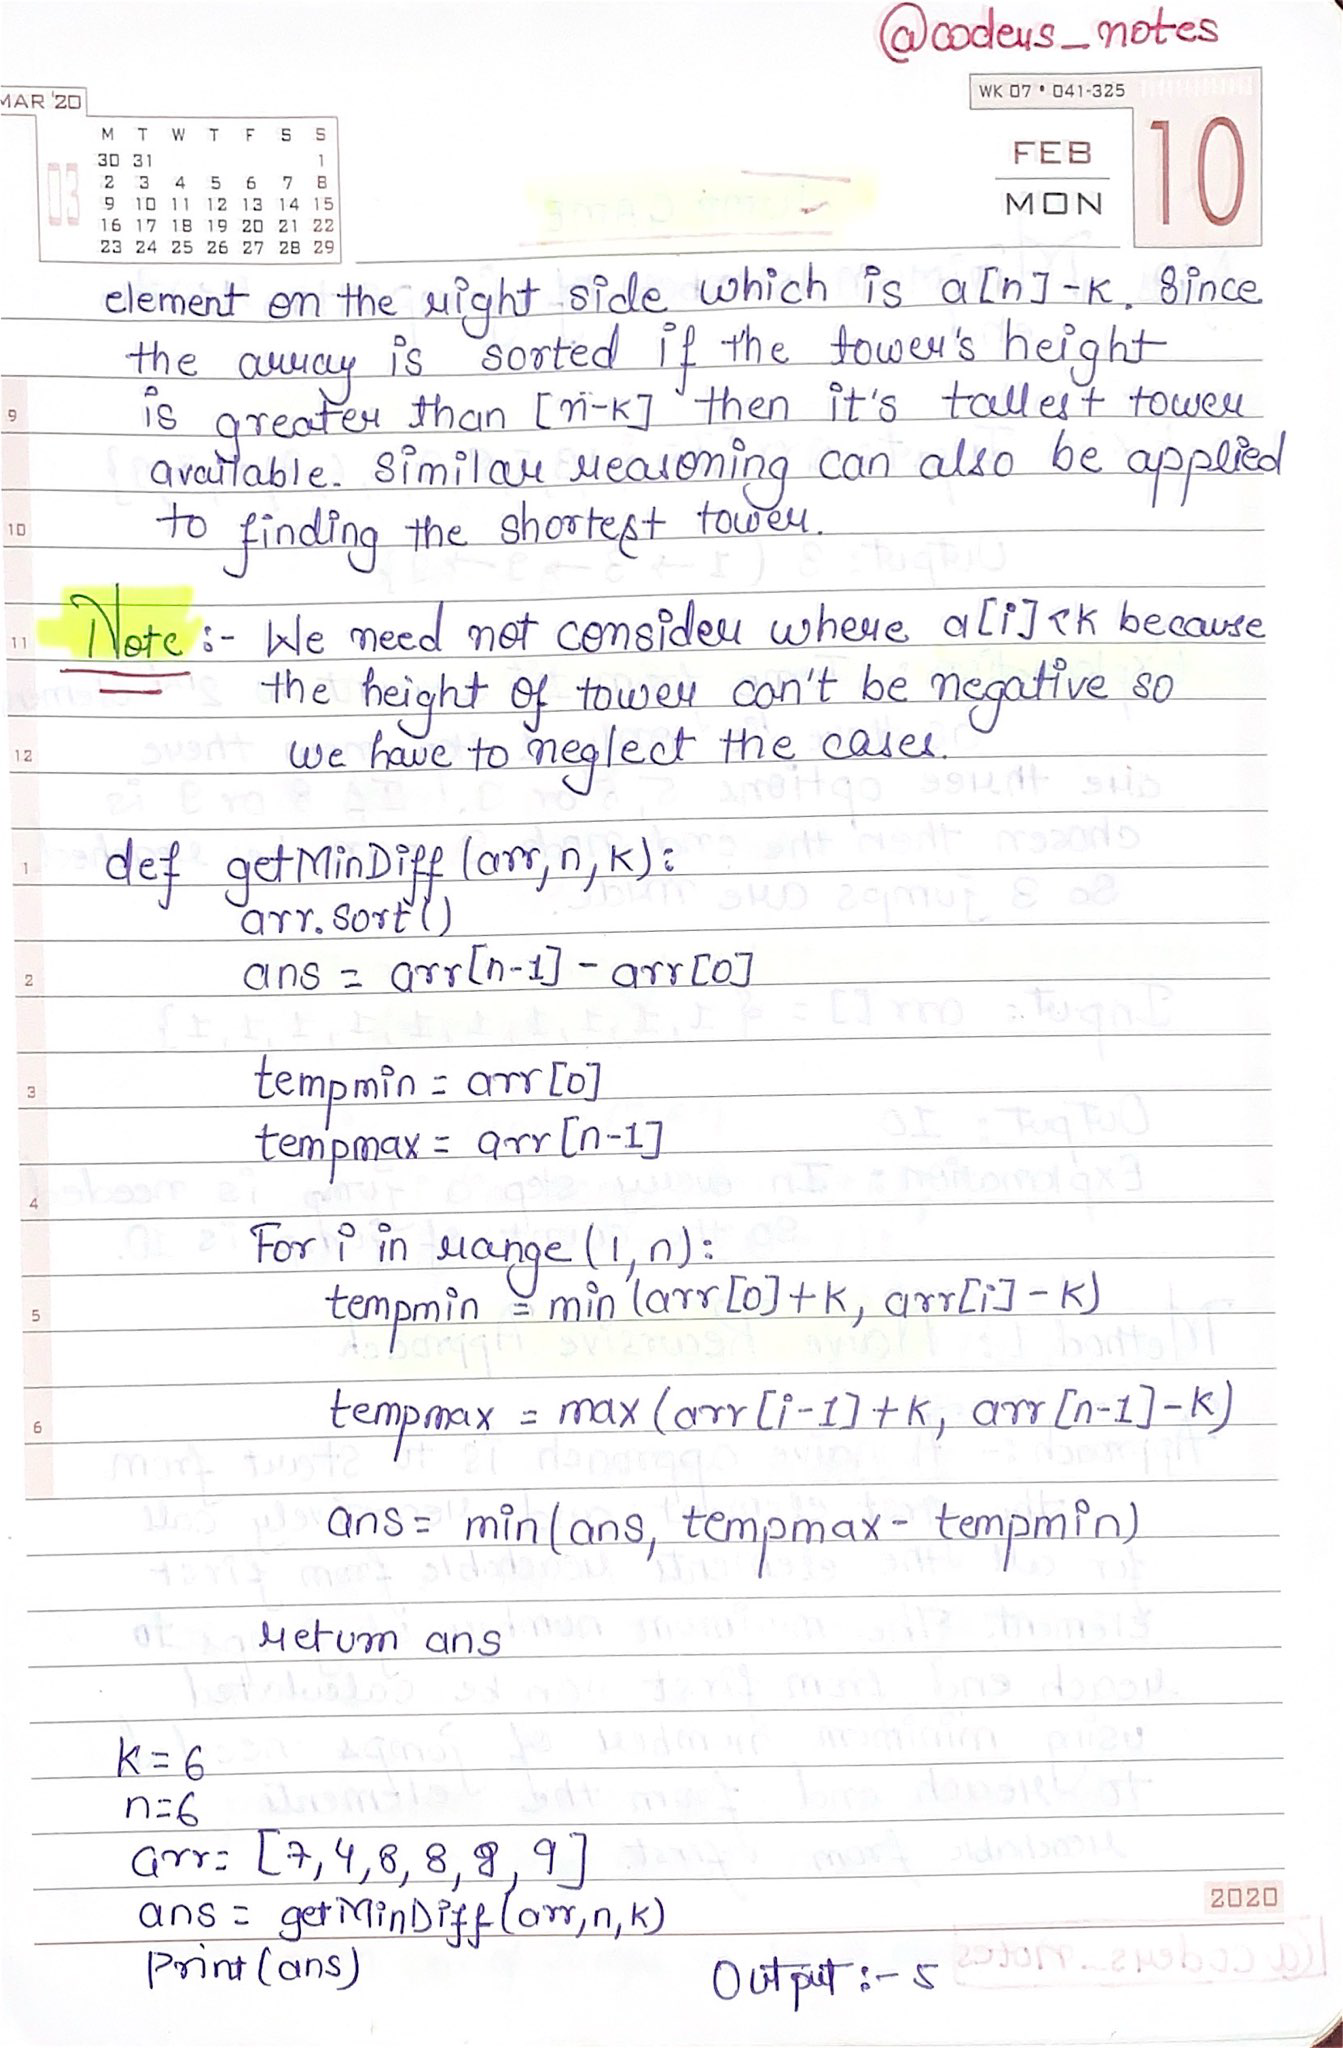 @codeus_notes
MAR '20
WK 07 • 041-325
03
M T W T F S S
30 31 1
2 3 4 5 6 7 8
9 10 11 12 13 14 15
16 17 18 19 20 21 22
23 24 25 26 27 28 29
FEB
MON
10
element on the right side which is a[n]-k. Since
the array is sorted if the tower's height
9
is greater than [n-k] then it's tallest tower
available. Similar reasoning can also be applied
10
to finding the shortest tower.
11
Note :- We need not consider where a[i]<k because
the height of tower can't be negative so
12
we have to neglect the cases.
1
def getMinDiff (arr, n, k):
arr. sort ()
2
ans = arr[n-1] - arr[0]
3
tempmin = arr [0]
tempmax = arr [n-1]
4
For i in range (1, n):
5
tempmin = min (arr [0] + k, arr[i] - k)
6
tempmax = max (arr [i-1] + k, arr [n-1] - k)
ans = min (ans, tempmax - tempmin)
return ans
k = 6
n = 6
arr = [7, 4, 8, 8, 8, 9]
ans = getMinDiff (arr, n, k)
Print (ans)
Output :- 5
2020